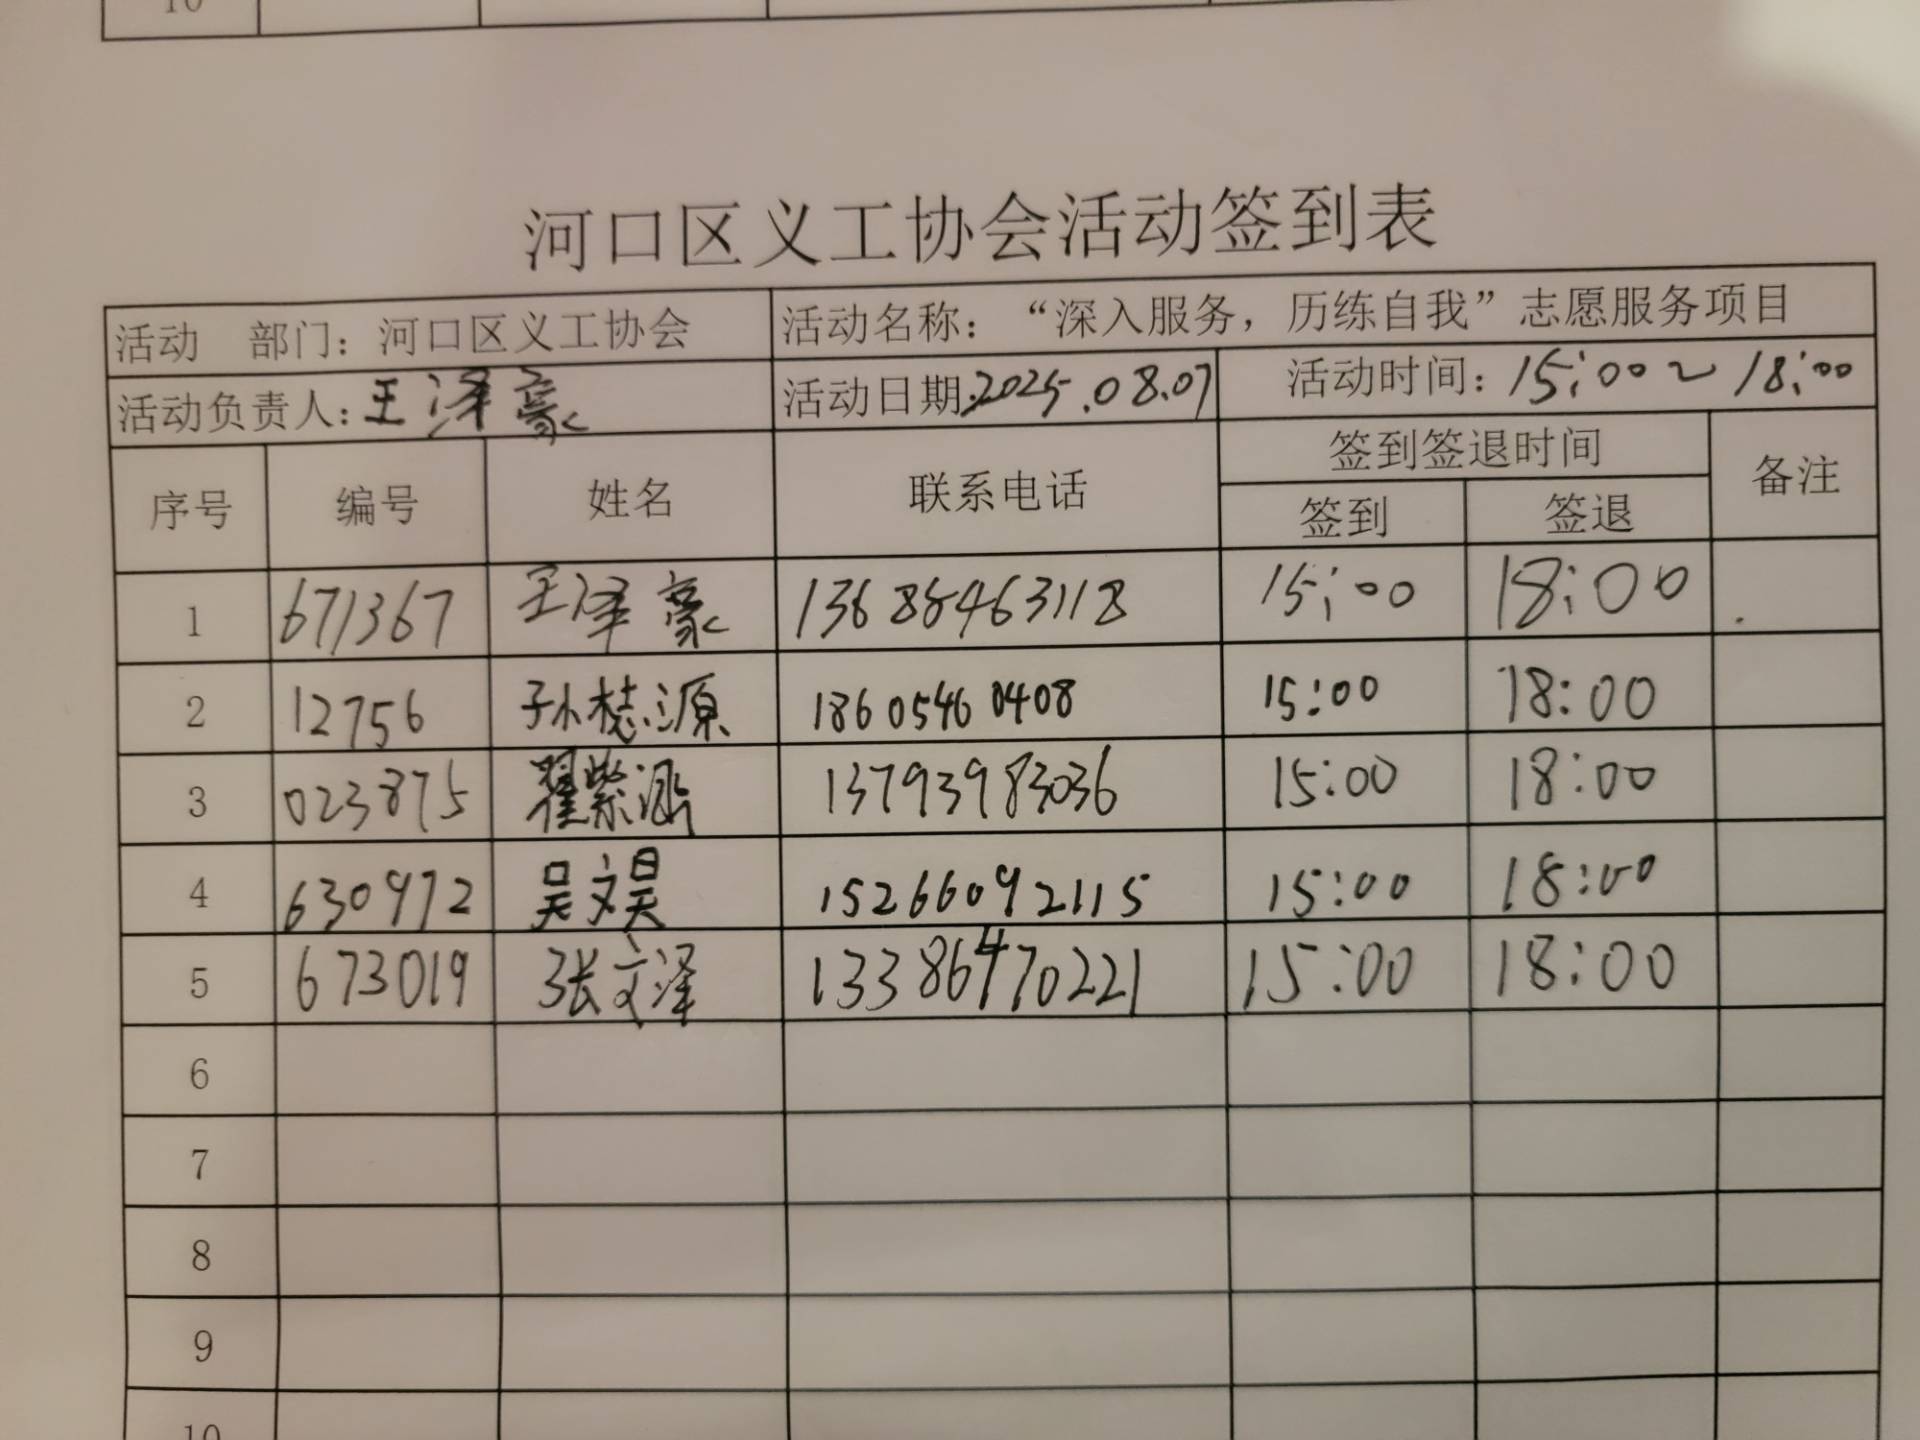 10
河口区义工协会活动签到表
活动 部门：河口区义工协会 活动名称：“深入服务，历练自我”志愿服务项目
活动负责人：王泽豪 活动日期：2025.08.07 活动时间：15:00～18:00
序号 编号 姓名 联系电话 签到签退时间 备注
签到 签退
1 671367 王泽豪 13685463118 15:00 18:00
2 12756 孙梽源 18605460408 15:00 18:00
3 023875 翟紫涵 13793983036 15:00 18:00
4 630972 吴文昊 15266092115 15:00 18:00
5 673019 张文泽 13386470221 15:00 18:00
6
7
8
9
10